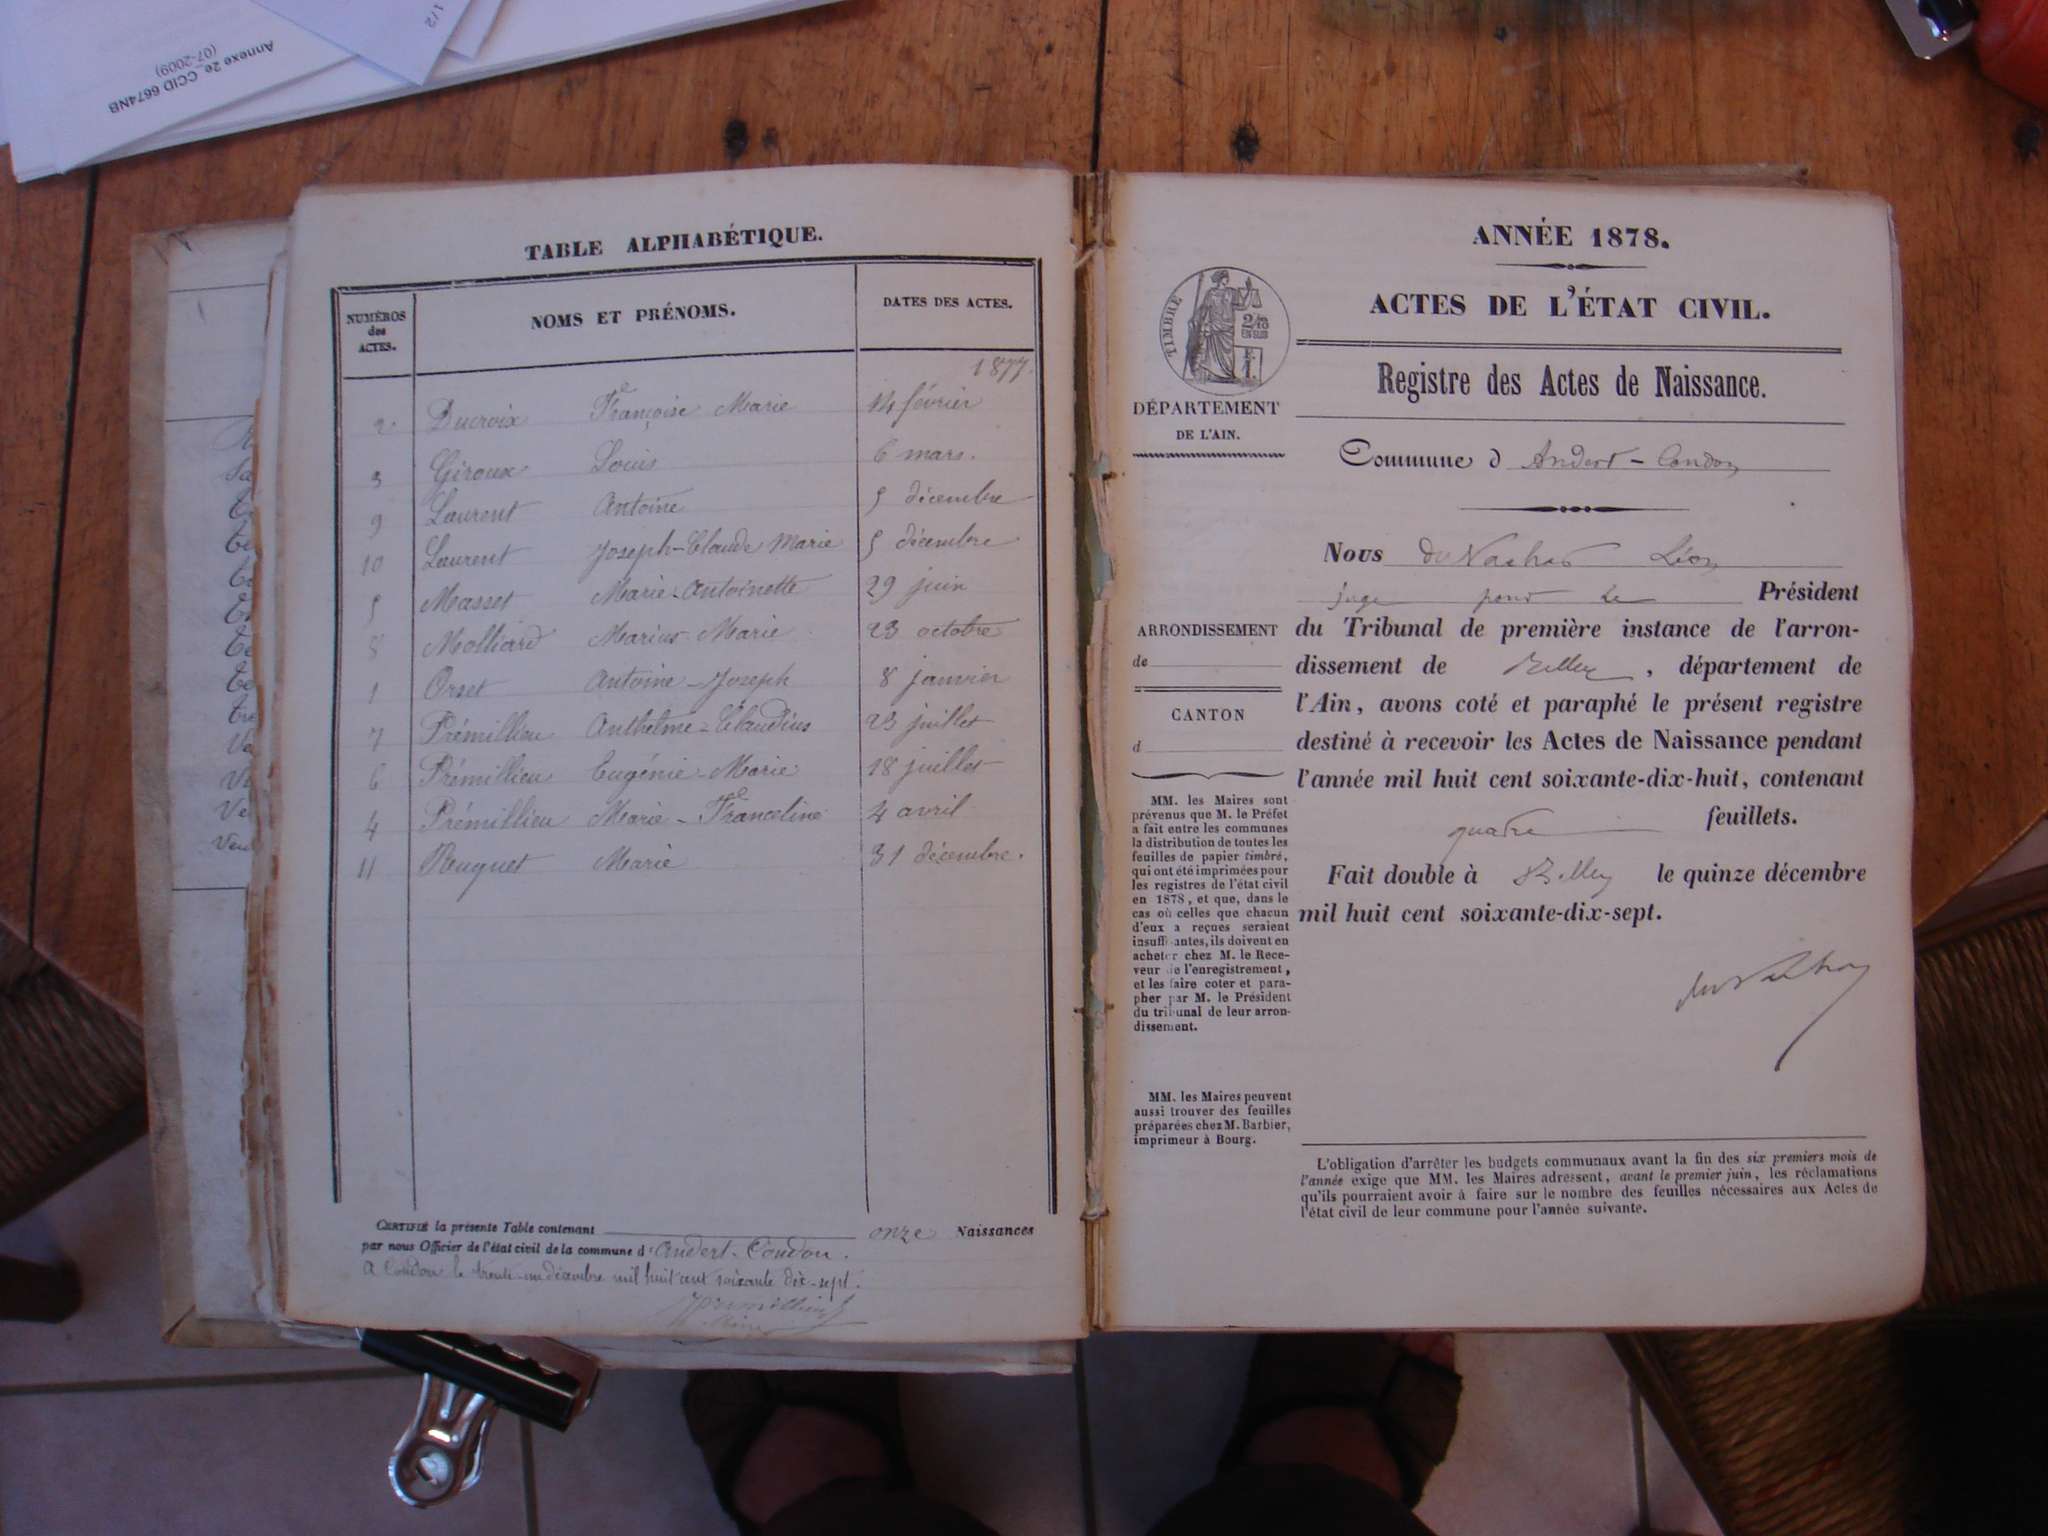 1/2
Annexe 2e_CCID 6674NB
(07-2009)
TABLE ALPHABÉTIQUE.
NUMÉROS des ACTES. NOMS ET PRÉNOMS. DATES DES ACTES.
1877.
2 Ducroix Françoise Marie 14 février
3 Giroux Louis 6 mars.
9 Laurent Antoine 5 décembre
10 Laurent Joseph-Claude Marie 5 décembre
5 Masset Marie-Antoinette 29 juin
8 Molliard Marius-Marie 23 octobre
1 Orset Antoine-Joseph 8 janvier
7 Prémillieu Anthelme-Claudius 23 juillet
6 Prémillieu Eugénie-Marie 18 juillet
4 Prémillieu Marie-Franceline 4 avril
11 Ruguet Marie 31 décembre.
CERTIFIÉ la présente Table contenant onze Naissances
par nous Officier de l'état civil de la commune d'Andert-Condon.
A Condon le trente-un décembre mil huit cent soixante dix-sept.
ANNÉE 1878.
ACTES DE L'ÉTAT CIVIL.
Registre des Actes de Naissance.
TIMBRE
DÉPARTEMENT
DE L'AIN.
Commune d Andert-Condon
Nous Léon
juge pour le Président
du Tribunal de première instance de l'arron-
dissement de Belley, département de
l'Ain, avons coté et paraphé le présent registre
destiné à recevoir les Actes de Naissance pendant
l'année mil huit cent soixante-dix-huit, contenant
quatre feuillets.
Fait double à Belley le quinze décembre
mil huit cent soixante-dix-sept.
ARRONDISSEMENT
de
CANTON
d
MM. les Maires sont
prévenus que M. le Préfet
a fait entre les communes
la distribution de toutes les
feuilles de papier timbré,
qui ont été imprimées pour
les registres de l'état civil
en 1878, et que, dans le
cas où celles que chacun
d'eux a reçues seraient
insuffisantes, ils doivent en
acheter chez M. le Rece-
veur de l'enregistrement,
et les faire coter et para-
pher par M. le Président
du tribunal de leur arron-
dissement.
MM. les Maires peuvent
aussi trouver des feuilles
préparées chez M. Barbier,
imprimeur à Bourg.
L'obligation d'arrêter les budgets communaux avant la fin des six premiers mois de
l'année exige que MM. les Maires adressent, avant le premier juin, les réclamations
qu'ils pourraient avoir à faire sur le nombre des feuilles nécessaires aux Actes de
l'état civil de leur commune pour l'année suivante.